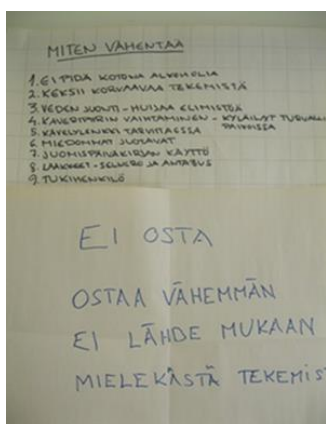 MITEN VÄHENTÄÄ
1. EI PIDÄ KOTONA ALKOHOLIA
2. KEKSII KORVAAVAA TEKEMISTÄ
3. VEDEN JUONTI - HUIJAA ELIMISTÖÄ
4. KAVERIPIIRIN VAIHTAMINEN - KYLÄILYT TURVALLISISSA
PAIKOISSA
5. KÄVELYLENKKI TARVITTAESSA
6. MIEDOMMAT JUOTAVAT
7. JUOMISPÄIVÄKIRJAN KÄYTTÖ
8. LÄÄKKEET - SELINCRO JA ANTABUS
9. TUKIHENKILÖ
EI OSTA
OSTAA VÄHEMMÄN
EI LÄHDE MUKAAN
MIELEKÄSTÄ TEKEMIS